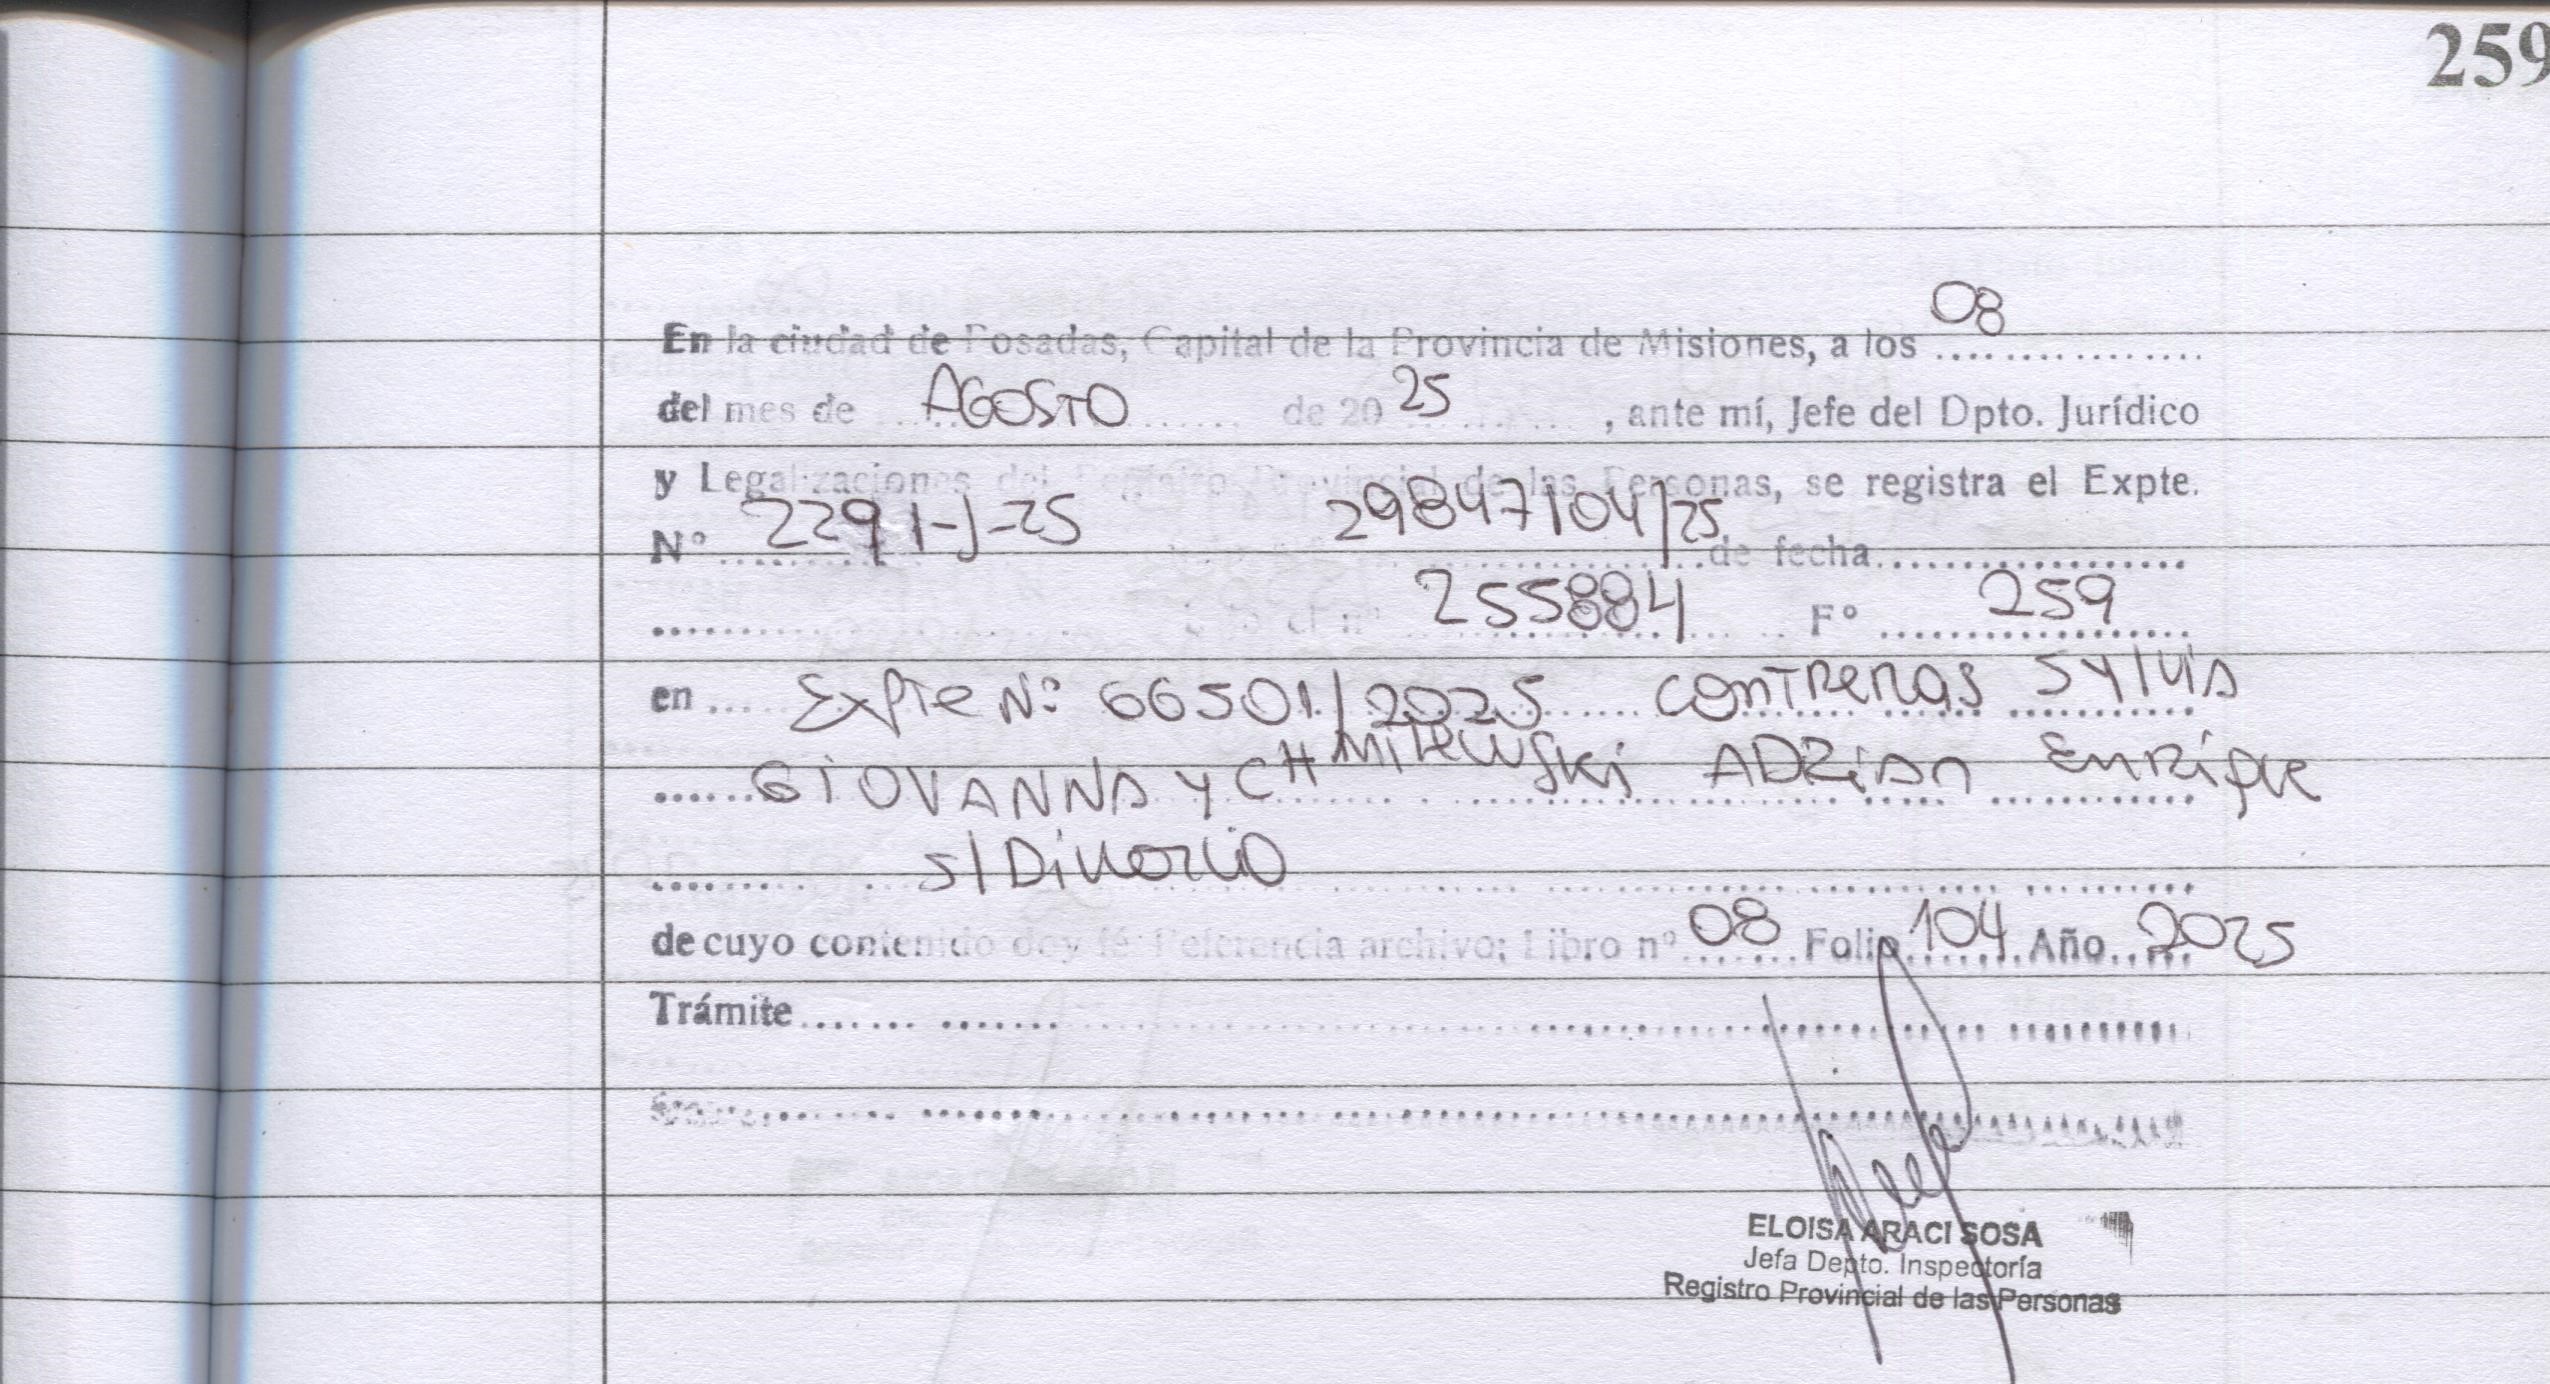 259
En la ciudad de Posadas, Capital de la Provincia de Misiones, a los 08
del mes de AGOSTO de 2025, ante mí, Jefe del Dpto. Jurídico
y Legalizaciones del Registro Provincial de las Personas, se registra el Expte.
Nº 2291-J-25 29847104/25 de fecha
bajo el nº 255884 Fº 259
en Expte Nº 66501/2025 Contreras Sylvia
GIOVANNA Y CHMILEWSKI ADRIAN Enrique
s/Divorcio
de cuyo contenido doy fé: Referencia archivo; Libro nº 08 Folio 104 Año 2025
Trámite
ELOISA ARACI SOSA
Jefa Depto. Inspectoría
Registro Provincial de las Personas